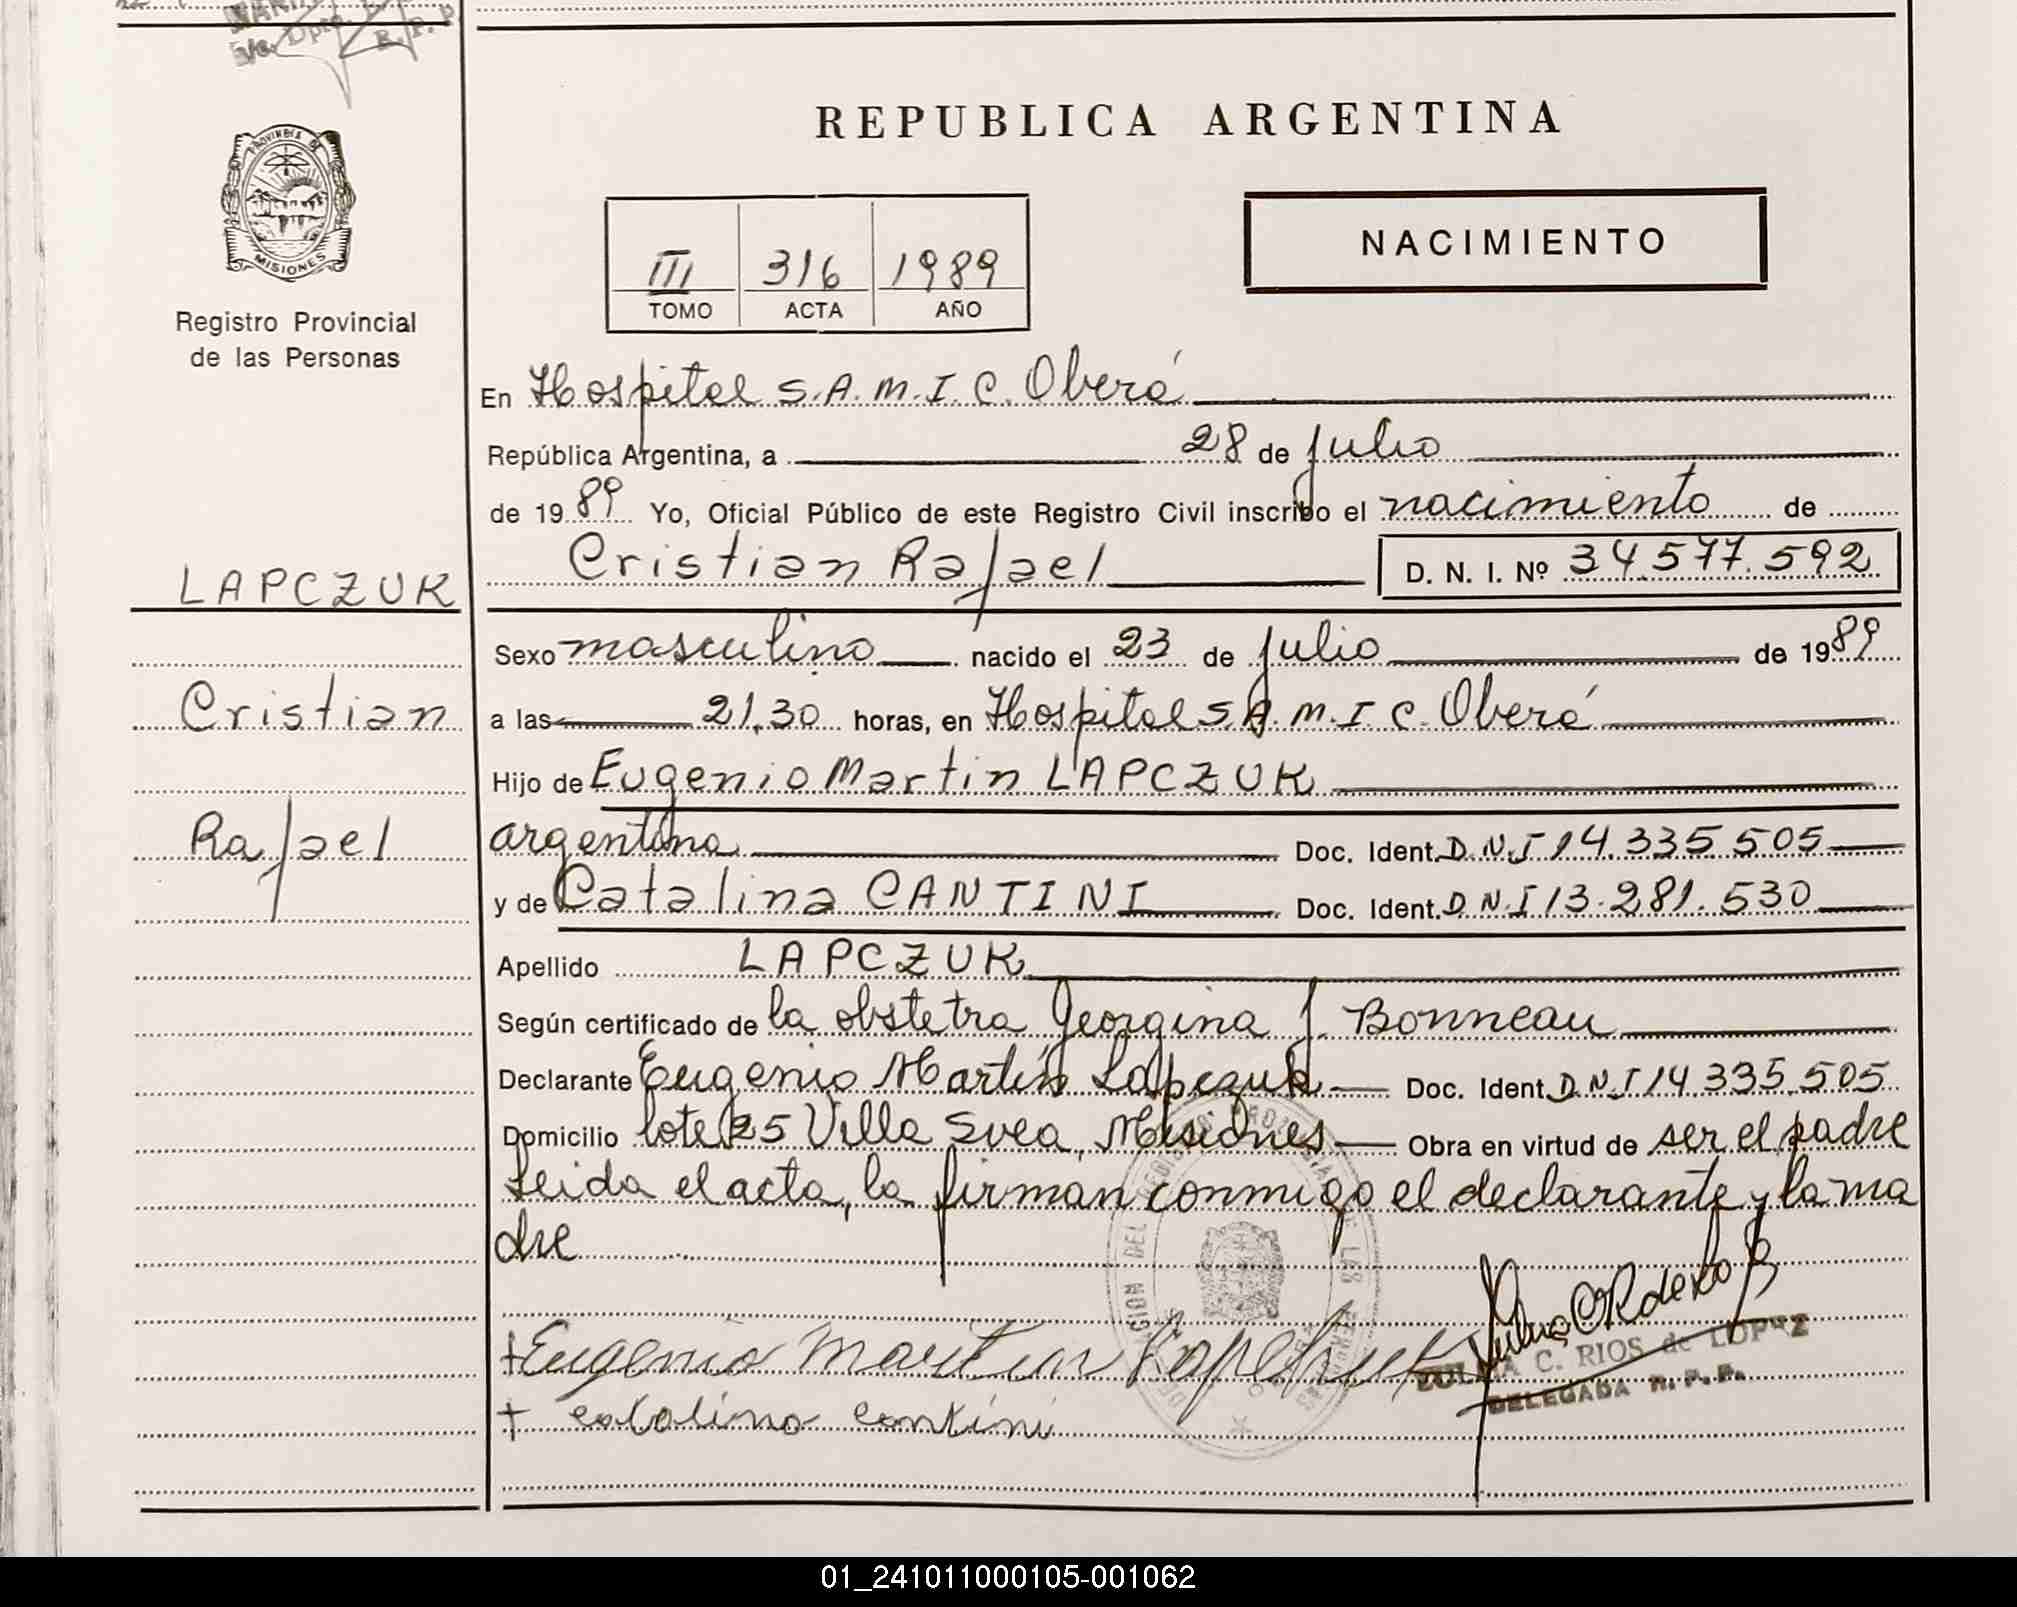 REPUBLICA ARGENTINA
PROVINCIA DE
MISIONES
Registro Provincial
de las Personas
III 316 1989
TOMO ACTA AÑO
NACIMIENTO
En Hospital S.A.M.I.C. Oberá
República Argentina, a 28 de julio
de 1989 Yo, Oficial Público de este Registro Civil inscribo el nacimiento de
LAPCZUK
Cristian Rafael D. N. I. Nº 34.577.592
Sexo masculino nacido el 23 de julio de 1989
Cristian
a las 21,30 horas, en Hospital S.A.M.I.C. Oberá
Hijo de Eugenio Martin LAPCZUK
Rafael
argentina Doc. Ident. D.N.I 14.335.505
y de Catalina CANTINI Doc. Ident. D.N.I 13.281.530
Apellido LAPCZUK
Según certificado de la obstetra Georgina J. Bonneau
Declarante Eugenio Martín Lapczuk Doc. Ident. D.N.I 14.335.505
Domicilio lote 25 Villa Svea, Misiones Obra en virtud de ser el padre
Leida el acta, la firman conmigo el declarante y la ma
dre
+ Eugenio Martin
ZULMA C. RIOS de LOPEZ
DELEGADA R. P. P.
+ catalina contini
01_241011000105-001062